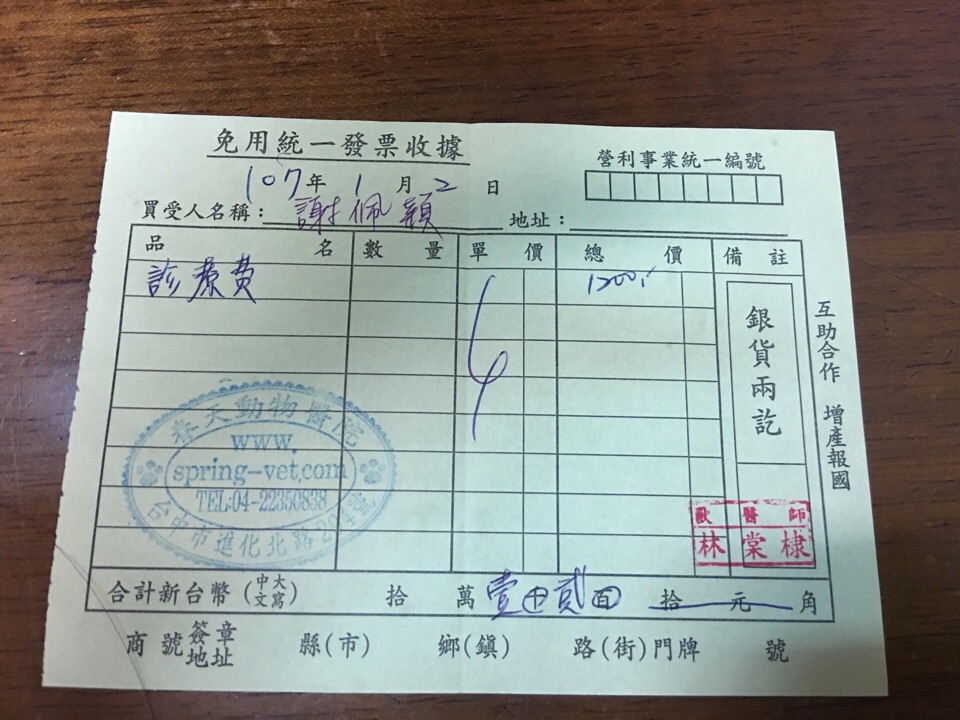 免用統一發票收據
營利事業統一編號
107年1月2日
買受人名稱：謝佩穎 地址：
品名 數量 單價 總價 備註
診療費 1200,-
銀貨兩訖
互助合作 增產報國
春天動物醫院
www.
spring-vet.com
TEL:04-22350838
台中市進化北路294號
獸醫師
林棠棣
合計新台幣(中文大寫) 拾 萬 壹仟貳佰 拾 元 角
商號簽章地址 縣(市) 鄉(鎮) 路(街)門牌 號